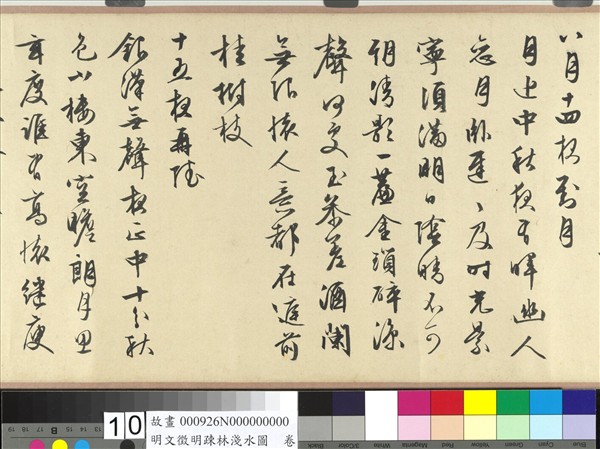 八月十四夜對月
月近中秋夜有暉幽人
戀月臥遲〻及時光景
寧須滿明日陰晴不可
期清影一簾金瑣碎涼
聲何處玉參差酒闌
無限懷人意都在庭前
桂樹枝
十五夜再
銀漢無聲夜正中十分秋
色小樓東空瞻朗月思
玄度誰有高懷繼庾
10
故畫 000926N000000000
明文徵明疎林淺水圖 卷
19 18 17 16 15 B 14 13 12 11
Black 3/Color White Magenta Red Yellow Green Cyan Blue